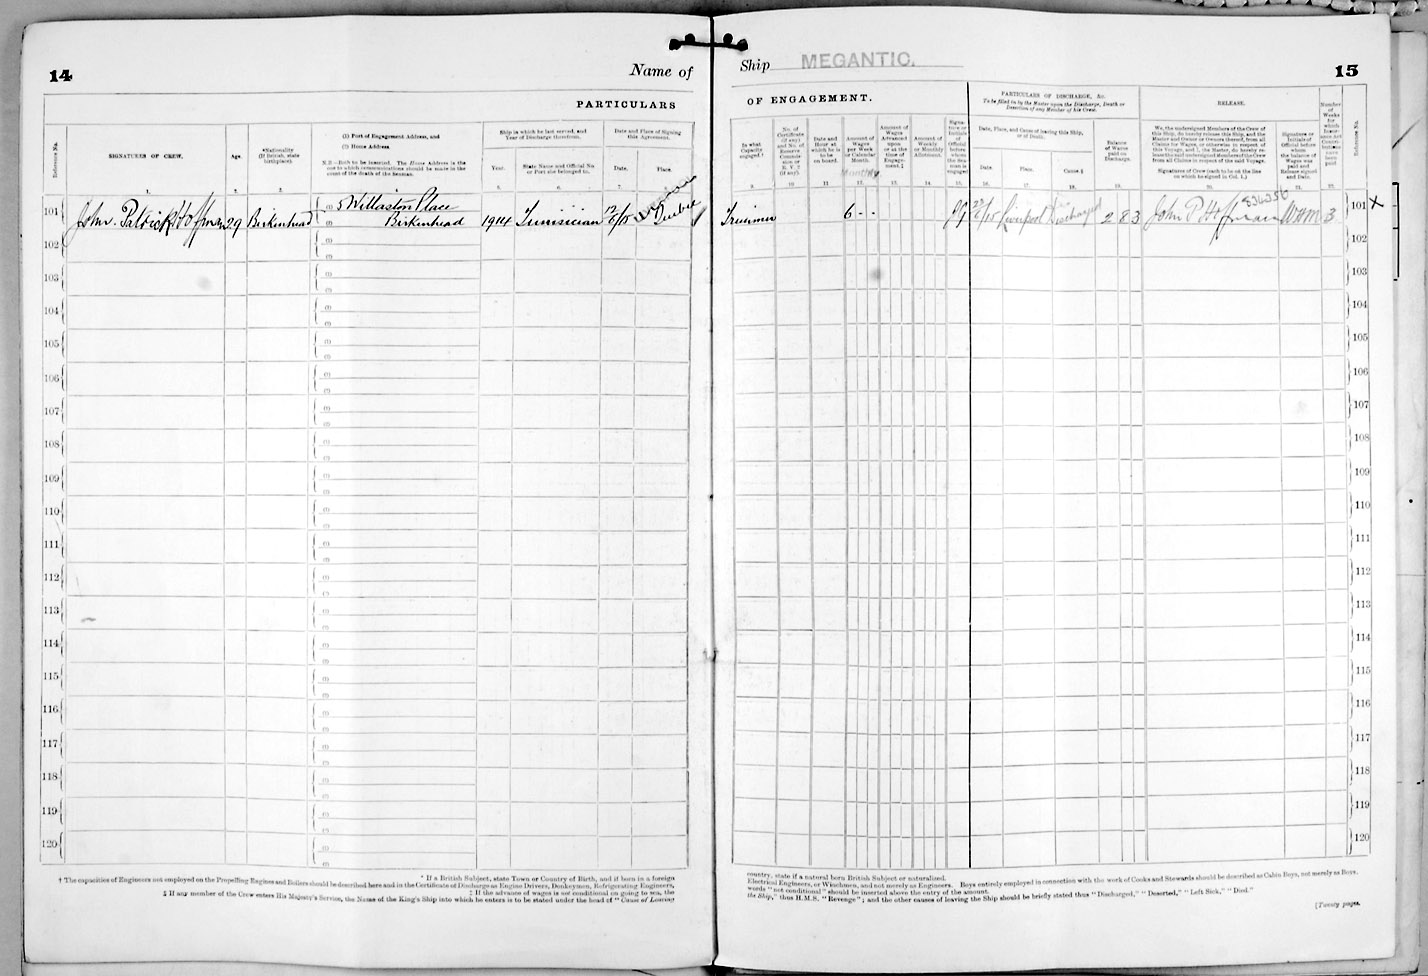 14
Name of
Ship MEGANTIC.
15
PARTICULARS
OF ENGAGEMENT.
PARTICULARS OF DISCHARGE, &c.
To be filled in by the Master upon the Discharge, Death or
Desertion of any Member of his Crew.
RELEASE.
Reference No.
SIGNATURES OF CREW.
Age.
*Nationality
(If British, state
birthplace).
(1) Port of Engagement Address, and
(2) Home Address.
N.B.—Both to be inserted. The Home Address is the
one to which communications should be made in the
event of the death of the Seaman.
Ship in which he last served, and
Year of Discharge therefrom.
Year.
State Name and Official No.
or Port she belonged to.
Date and Place of Signing
this Agreement.
Date.
Place.
In what
Capacity
engaged.†
No. of
Certificate
(if any)
and No. of
Reserve
Commis-
sion or
R. V. 2
(if any).
Date and
Hour at
which he is
to be
on board.
Amount of
Wages
per Week
or Calendar
Month.
Monthly
Amount of
Wages
Advanced
upon
or at the
time of
Engage-
ment.‡
Amount of
Weekly
or Monthly
Allotment.
Signa-
ture or
Initials
of
Official
before
whom
the Sea-
man is
engaged
Date, Place, and Cause of leaving this Ship,
or of Death.
Date.
Place.
Cause.§
Balance
of Wages
paid on
Discharge.
We, the undersigned Members of the Crew of
this Ship, do hereby release this Ship, and the
Master and Owner or Owners thereof, from all
Claims for Wages, or otherwise in respect of
this Voyage, and I, the Master, do hereby re-
lease the said undersigned Members of the Crew
from all Claims in respect of the said Voyage.
Signatures of Crew (each to be on the line
on which he signed in Col. 1.)
Signature or
Initials of
Official before
whom
the balance of
Wages was
paid and
Release signed
and Date.
Number
of
Weeks
for
which
been
paid
Reference No.
101 John Patrick Hoffman 29 Birkenhead 5 Willaston Place
Birkenhead 1914 Tunisian 12/6/15 Quebec
Trimmer 6 - - 22/6/15 Liverpool Discharged 2 8 3 John P Hoffman 834356 3 101 X
102 102
103 103
104 104
105 105
106 106
107 107
108 108
109 109
110 110
111 111
112 112
113 113
114 114
115 115
116 116
117 117
118 118
119 119
120 120
* If a British Subject, state Town or Country of Birth, and if born in a foreign
country, state if a natural born British Subject or naturalized.
† The capacities of Engineers not employed on the Propelling Engines and Boilers should be described here and in the Certificate of Discharge as Engine Drivers, Donkeymen, Refrigerating Engineers,
Electrical Engineers, or Winchmen, and not merely as Engineers. Boys entirely employed in connection with the work of Cooks and Stewards should be described as Cabin Boys, not merely as Boys.
‡ If the advance of wages is not conditional on going to sea, the
words "not conditional" should be inserted above the entry of the amount.
§ If any member of the Crew enters His Majesty's Service, the Name of the King's Ship into which he enters is to be stated under the head of "Cause of Leaving
the Ship," thus H.M.S. "Revenge"; and the other causes of leaving the Ship should be briefly stated thus "Discharged," "Deserted," "Left Sick," "Died."
[Twenty pages.